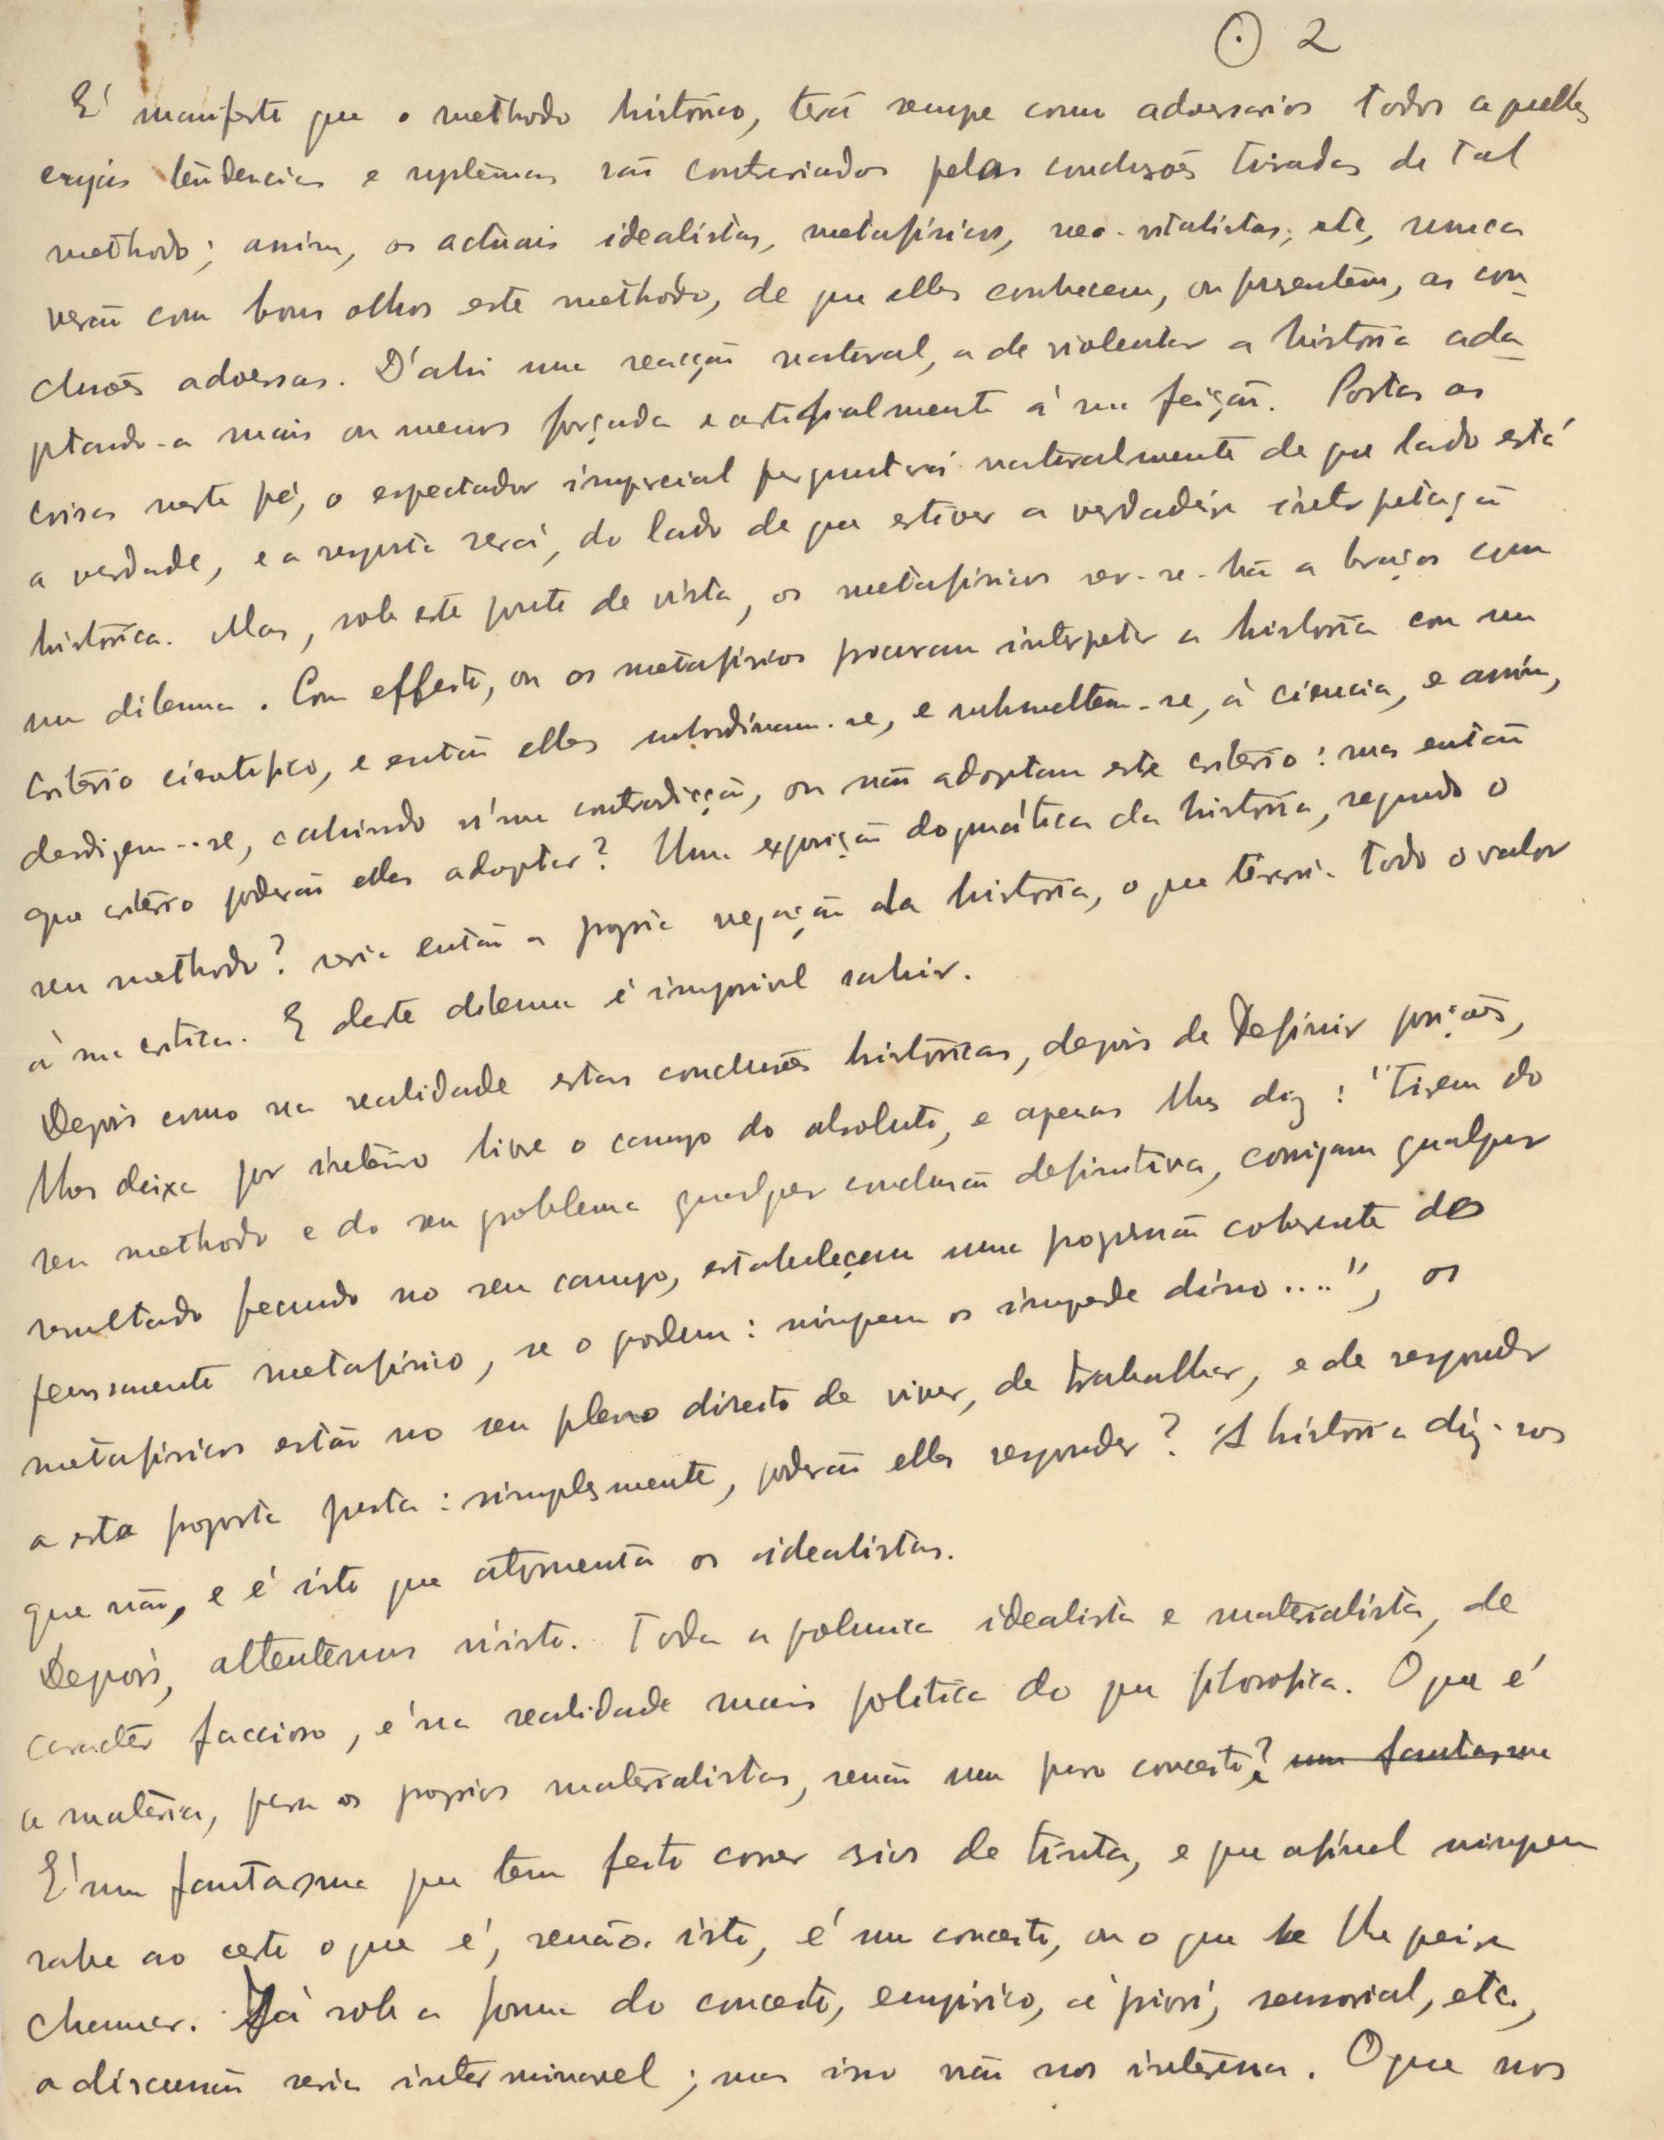 2
E' manifesto que o methodo historico, terá sempre como adversarios todos aquelles
cujas tendencias e systemas são contrariados pelas conclusões tiradas de tal
methodo; assim, os actuais idealistas, metafisicos, neo-vitalistas, etc, nunca
verão com bons olhos este methodo, de que elles conhecem, ou presentem, as con-
clusões adversas. D'ahi uma reacção natural, a de violentar a historia ada-
ptando-a mais ou menos forçada e artificialmente á sua feição. Postas as
coisas neste pé, o espectador imparcial perguntará naturalmente de que lado está
a verdade, e a resposta será, do lado de que estiver a verdadeira interpretação
historica. Mas, sob este ponto de vista, os metafisicos ver-se-hão a braços com
um dilemma. Com effeito, ou os metafisicos procuram interpretar a historia com um
criterio cientifico, e então elles subordinam-se, e submettem-se, á ciencia, e assim,
desdizem-se, cahindo n'uma contradicção, ou não adoptam este criterio: mas então
que criterio poderão elles adoptar? Uma exposição dogmática da historia, segundo o
seu methodo? seria então a propria negação da historia, o que tiraria todo o valor
á sua critica. E deste dilemma é impossivel sahir.
Depois como na realidade estas conclusões historicas, depois de definir posições,
lhes deixa por inteiro livre o campo do absoluto, e apenas lhes diz: "Tirem do
seu methodo e do seu problema qualquer conclusão definitiva, consigam qualquer
resultado fecundo no seu campo, estabeleçam uma progressão coherente do
pensamento metafisico, se o podem: ninguem os impede disso....", os
metafisicos estão no seu pleno direito de viver, de trabalhar, e de responder
a esta proposta justa: simplesmente, poderão elles responder? A historia diz-nos
que não, e é isto que atormenta os idealistas.
Depois, attentemos n'isto. Toda a polemica idealista e materialista, de
caracter faccioso, é na realidade mais politica do que filosofica. O que é
a materia, para os proprios materialistas, senão um puro conceito? um fantasma
E' um fantasma que tem feito correr rios de tinta, e que afinal ninguem
sabe ao certo o que é, senão isto, é um conceito, ou o que se lhe queira
chamar. Já sob a forma do conceito, empirico, á priori, sensorial, etc.,
a discussão seria interminavel; mas isso não nos interessa. O que nos